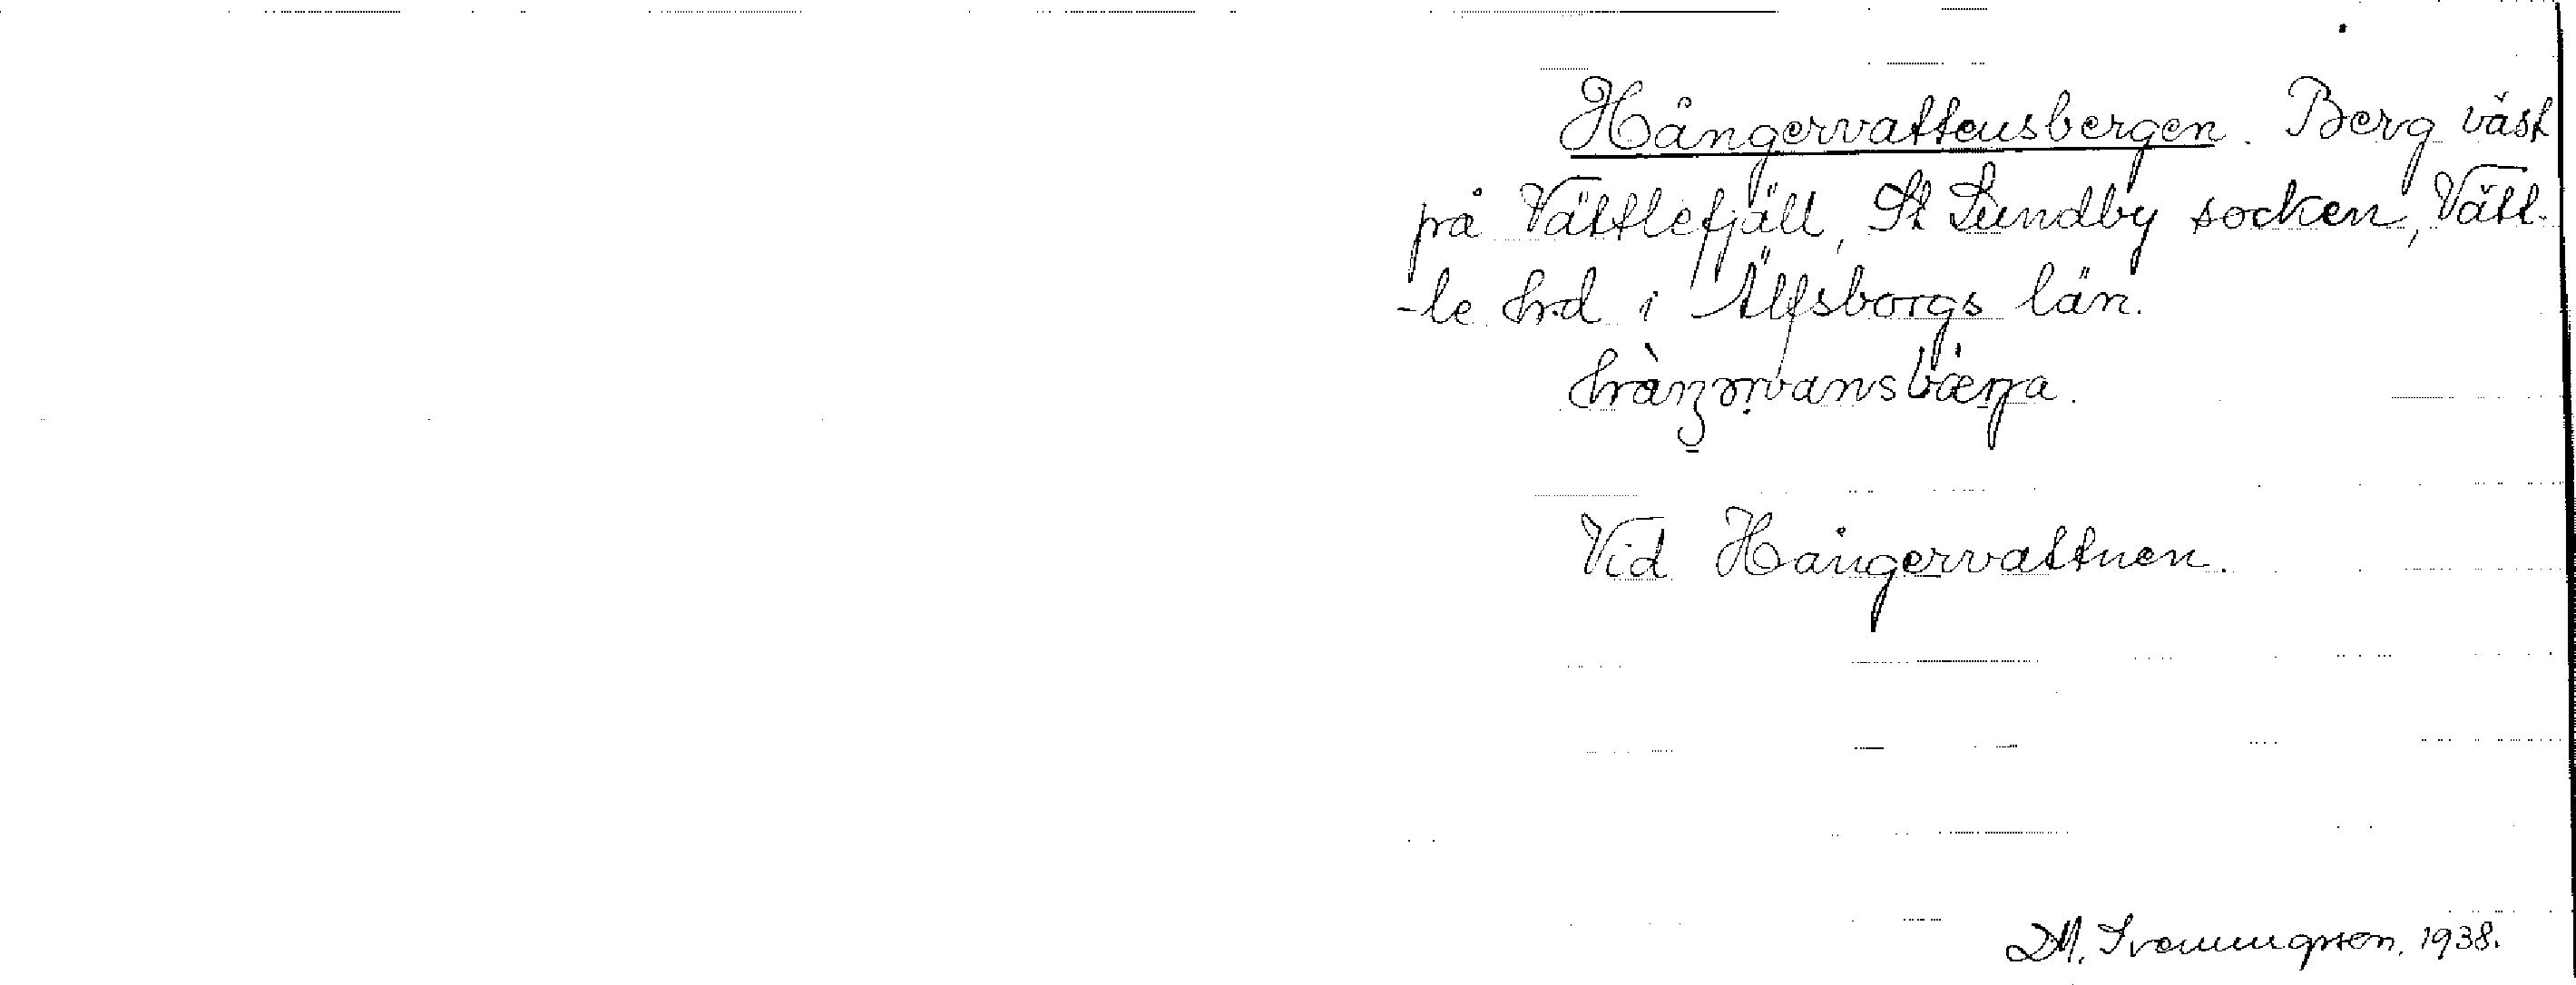 Hångervattensbergen. Berg väst
på Vättlefjäll, St Lundby socken, Vätt-
-le hrd i Älfsborgs län.
Vid Hångervattnen.
M. Svenungsson. 1938.